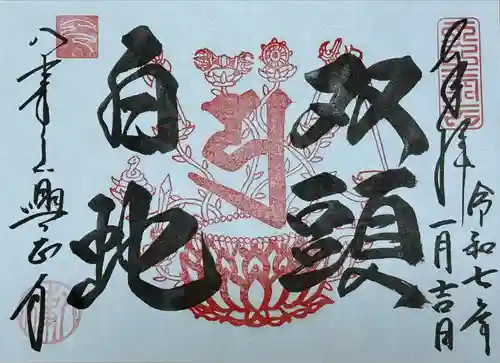 奉拝
令和七年
一月吉日
双頭
白蛇
八事山興正寺